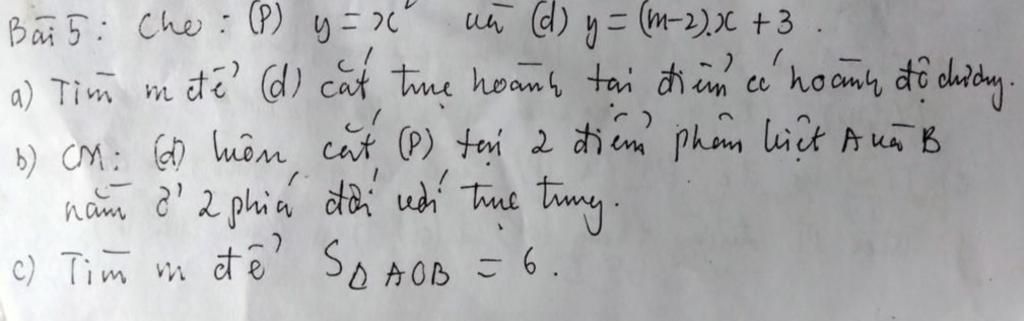 Bài 5: Cho: (P) y = x² và (d) y = (m-2).x + 3.
a) Tìm m để (d) cắt trục hoành tại điểm có hoành độ dương.
b) CM: (d) luôn cắt (P) tại 2 điểm phân biệt A và B
nằm ở 2 phía đối với trục tung.
c) Tìm m để S△AOB = 6.